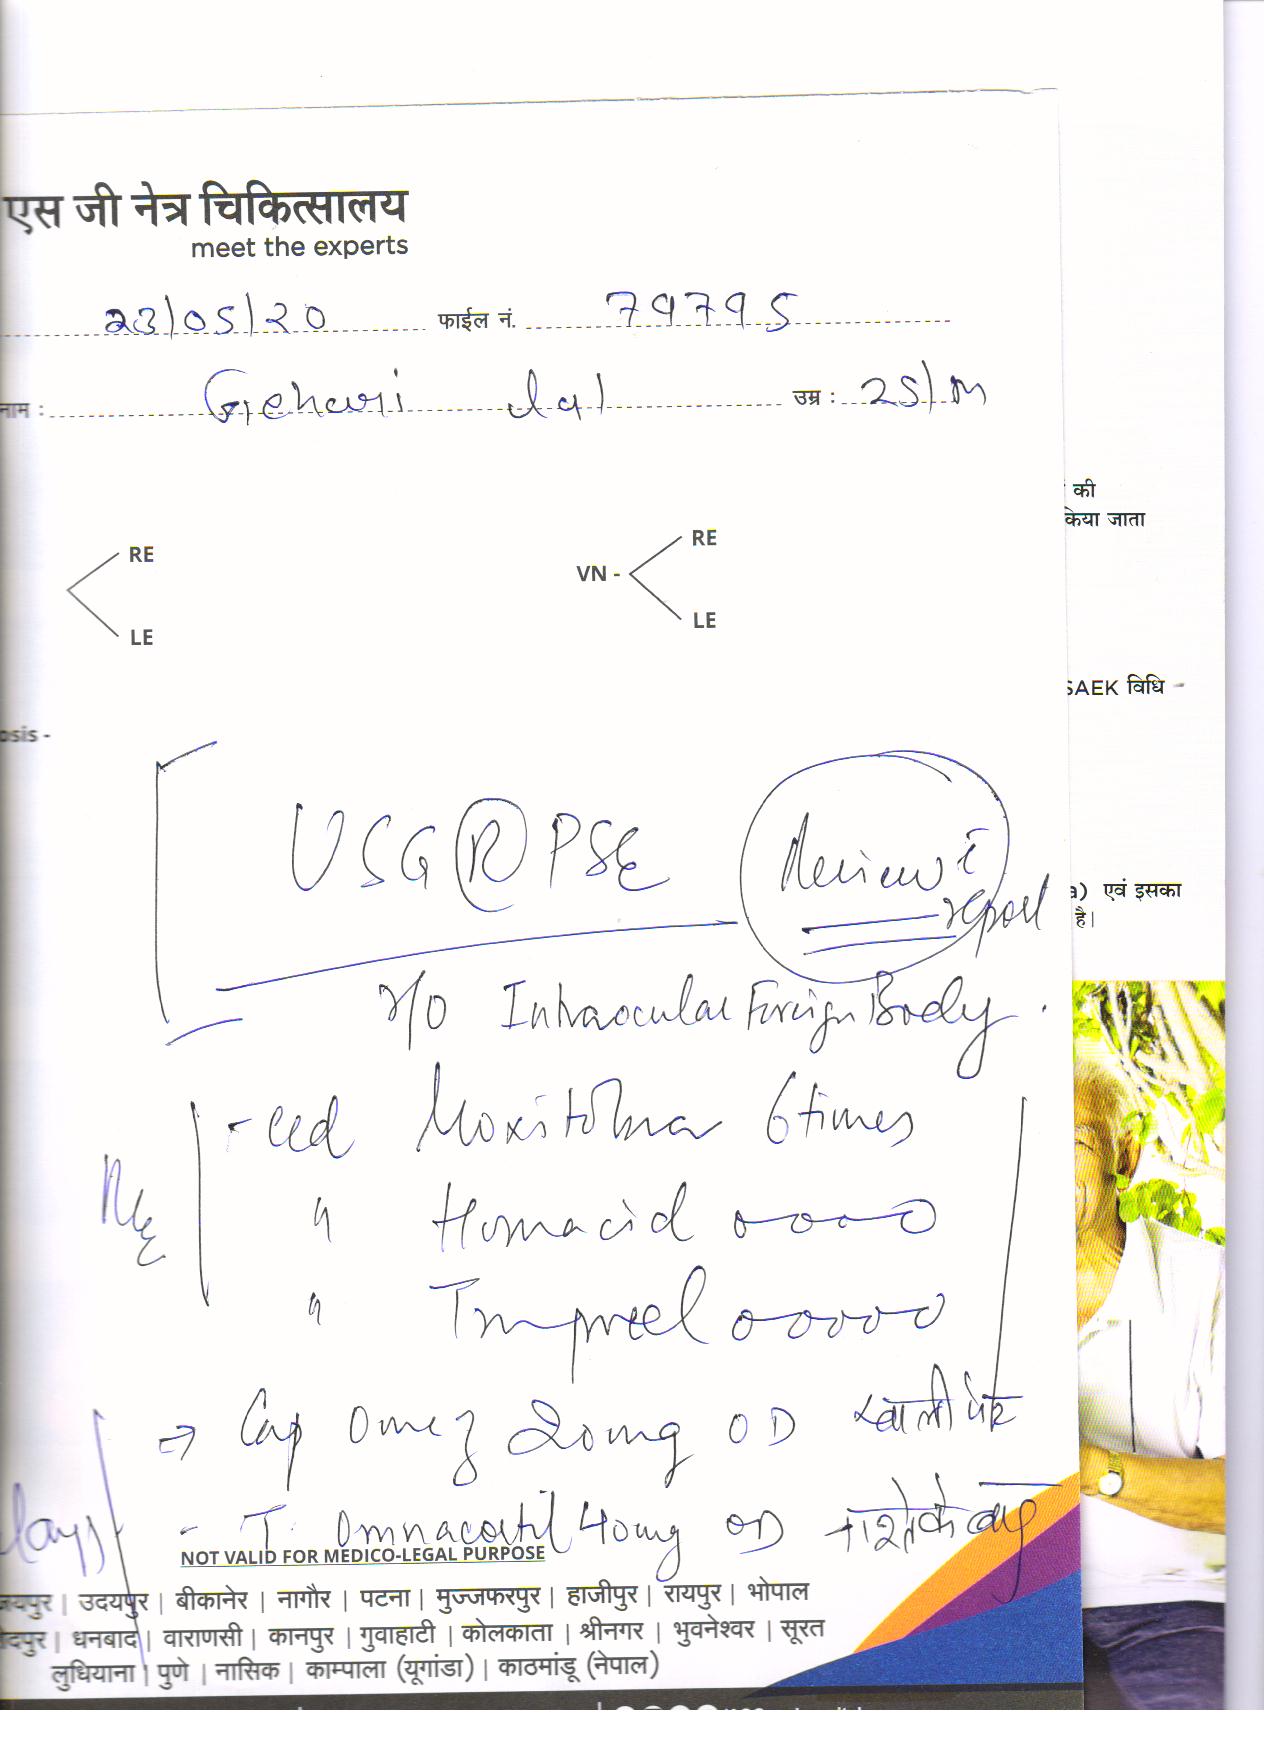 एस जी नेत्र चिकित्सालय
meet the experts
23/05/20 फाईल नं. 79795
नाम : lal उम्र : 25/M
RE
LE
VN -
RE
LE
की
किया जाता
SAEK विधि -
osis -
USG (R) PSE
Review c̄
report
a) एवं इसका
है।
r/o Intraocular Foreign Body.
- eed 6 times
RE
" Homacid
"
→ Cap Omez 20mg OD खाली पेट
- T. Omnacortil 40mg OD नाश्ते के बाद
days
NOT VALID FOR MEDICO-LEGAL PURPOSE
जयपुर | उदयपुर | बीकानेर | नागौर | पटना | मुज्जफरपुर | हाजीपुर | रायपुर | भोपाल
दपुर | धनबाद | वाराणसी | कानपुर | गुवाहाटी | कोलकाता | श्रीनगर | भुवनेश्वर | सूरत
लुधियाना | पुणे | नासिक | काम्पाला (यूगांडा) | काठमांडू (नेपाल)